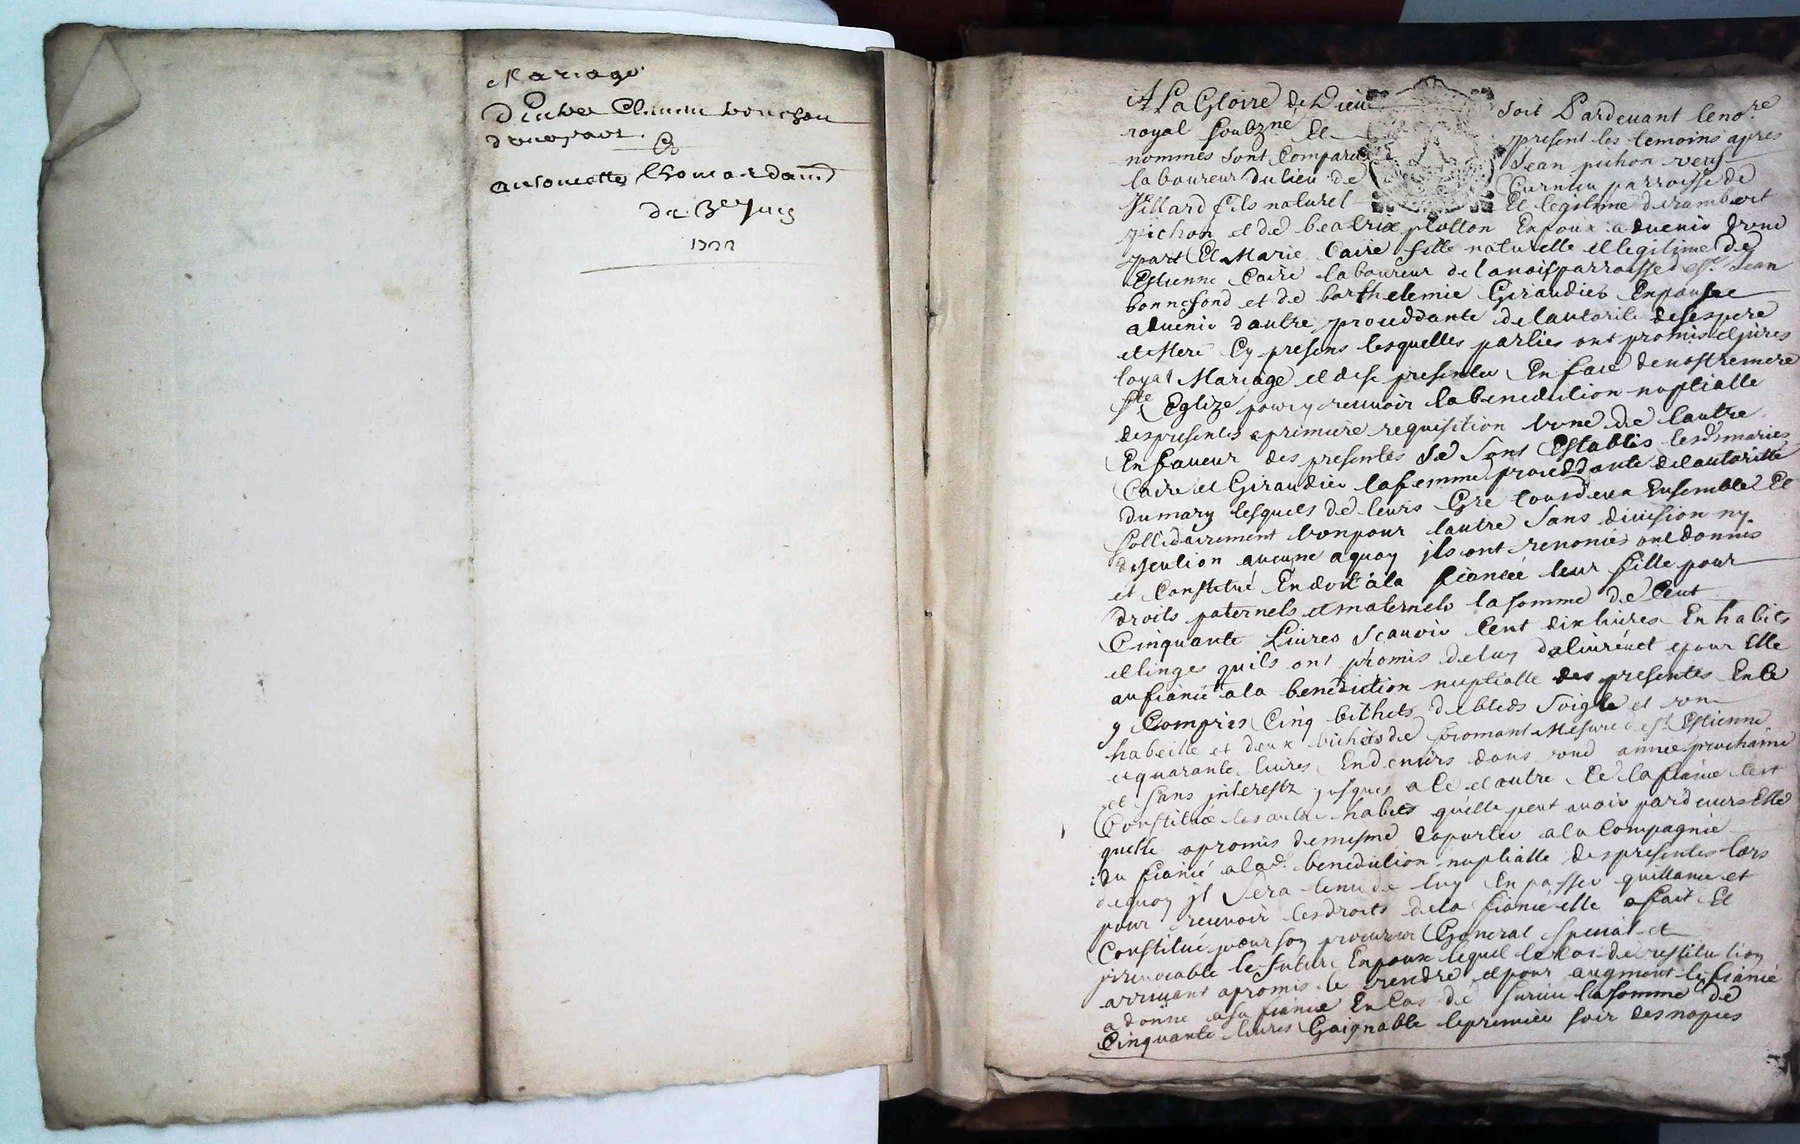 Mariage
d'entre Claude
d'une part
Et
antoinette Thomas dam
du 3e Juin
1722
A La Gloire de Dieu soit Pardevant le nore
royal soubzne Et present les temoins apres
nommes sont Comparu Jean pichon veuf
laboureur du lieu de Curnieu parroisse de
Villard fils naturel Et legitime de rambert
pichon et de beatrix plotton Epoux advenir dune
part Et Marie Caire fille naturelle et legitime de
Estienne Caire laboureur de lanois parroisse de St Jean
bonnefond et de barthelemie Giraudier Epouse
advenir dautre proceddante de lautorité de ses pere
et Mere Cy presens lesquelles parties ont promis et jures
loyal Mariage et de se presenter En face de nostre mere
Ste Eglize pour y recevoir la benediction nuptialle
des presentes a premiere requisition lune de lautre
En faveur des presentes Se Sont Establis lesds maries
Caire et Giraudier la femme proceddante de lautoritté
du mary lesquels de leurs Gré tous deux Ensemble Et
sollidairement lun pour lautre Sans division ny
discution aucune a quoy jls ont renoncés ont donnés
et Constitué En dot a la fiancée leur fille pour
droits paternels et maternels la somme de Cent
Cinquante Livres scauoir Cent dix livres En habits
et linges quils ont promis de luy delivré et pour Elle
au fiancé a la benediction nuptialle des presentes En Ce
y Compris Cinq bichets de bleds soigle et une
habeille et deux bichets de fromant Mesure de St Estienne
et quarante livres En deniers dans une année prochaine
et sans jnterestz jusques a Ce et outre Ce la fiancée sest
Constitué les autre habits quelle peut avoir pardevers Elle
quelle a promis de mesme apporter a la Compagnie
du fiancé a lad. benediction nuptialle des presentes lors
de quoy jl sera tenu de luy En passer quittance et
pour recevoir les droits de la fiancée elle a fait Et
Constitué pour son procureur General special et
jrrevocable le futur Epoux lequel le Cas de restitution
arrivant a promis le rendre et pour augment le fiancé
a donné a sa fiancée En Cas de survie la somme de
Cinquante livres Gaignable le premier soir des nopces